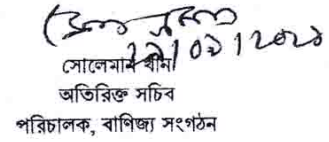 ২৯/০৯/২০২০
সোলেমান খান
অতিরিক্ত সচিব
পরিচালক, বাণিজ্য সংগঠন